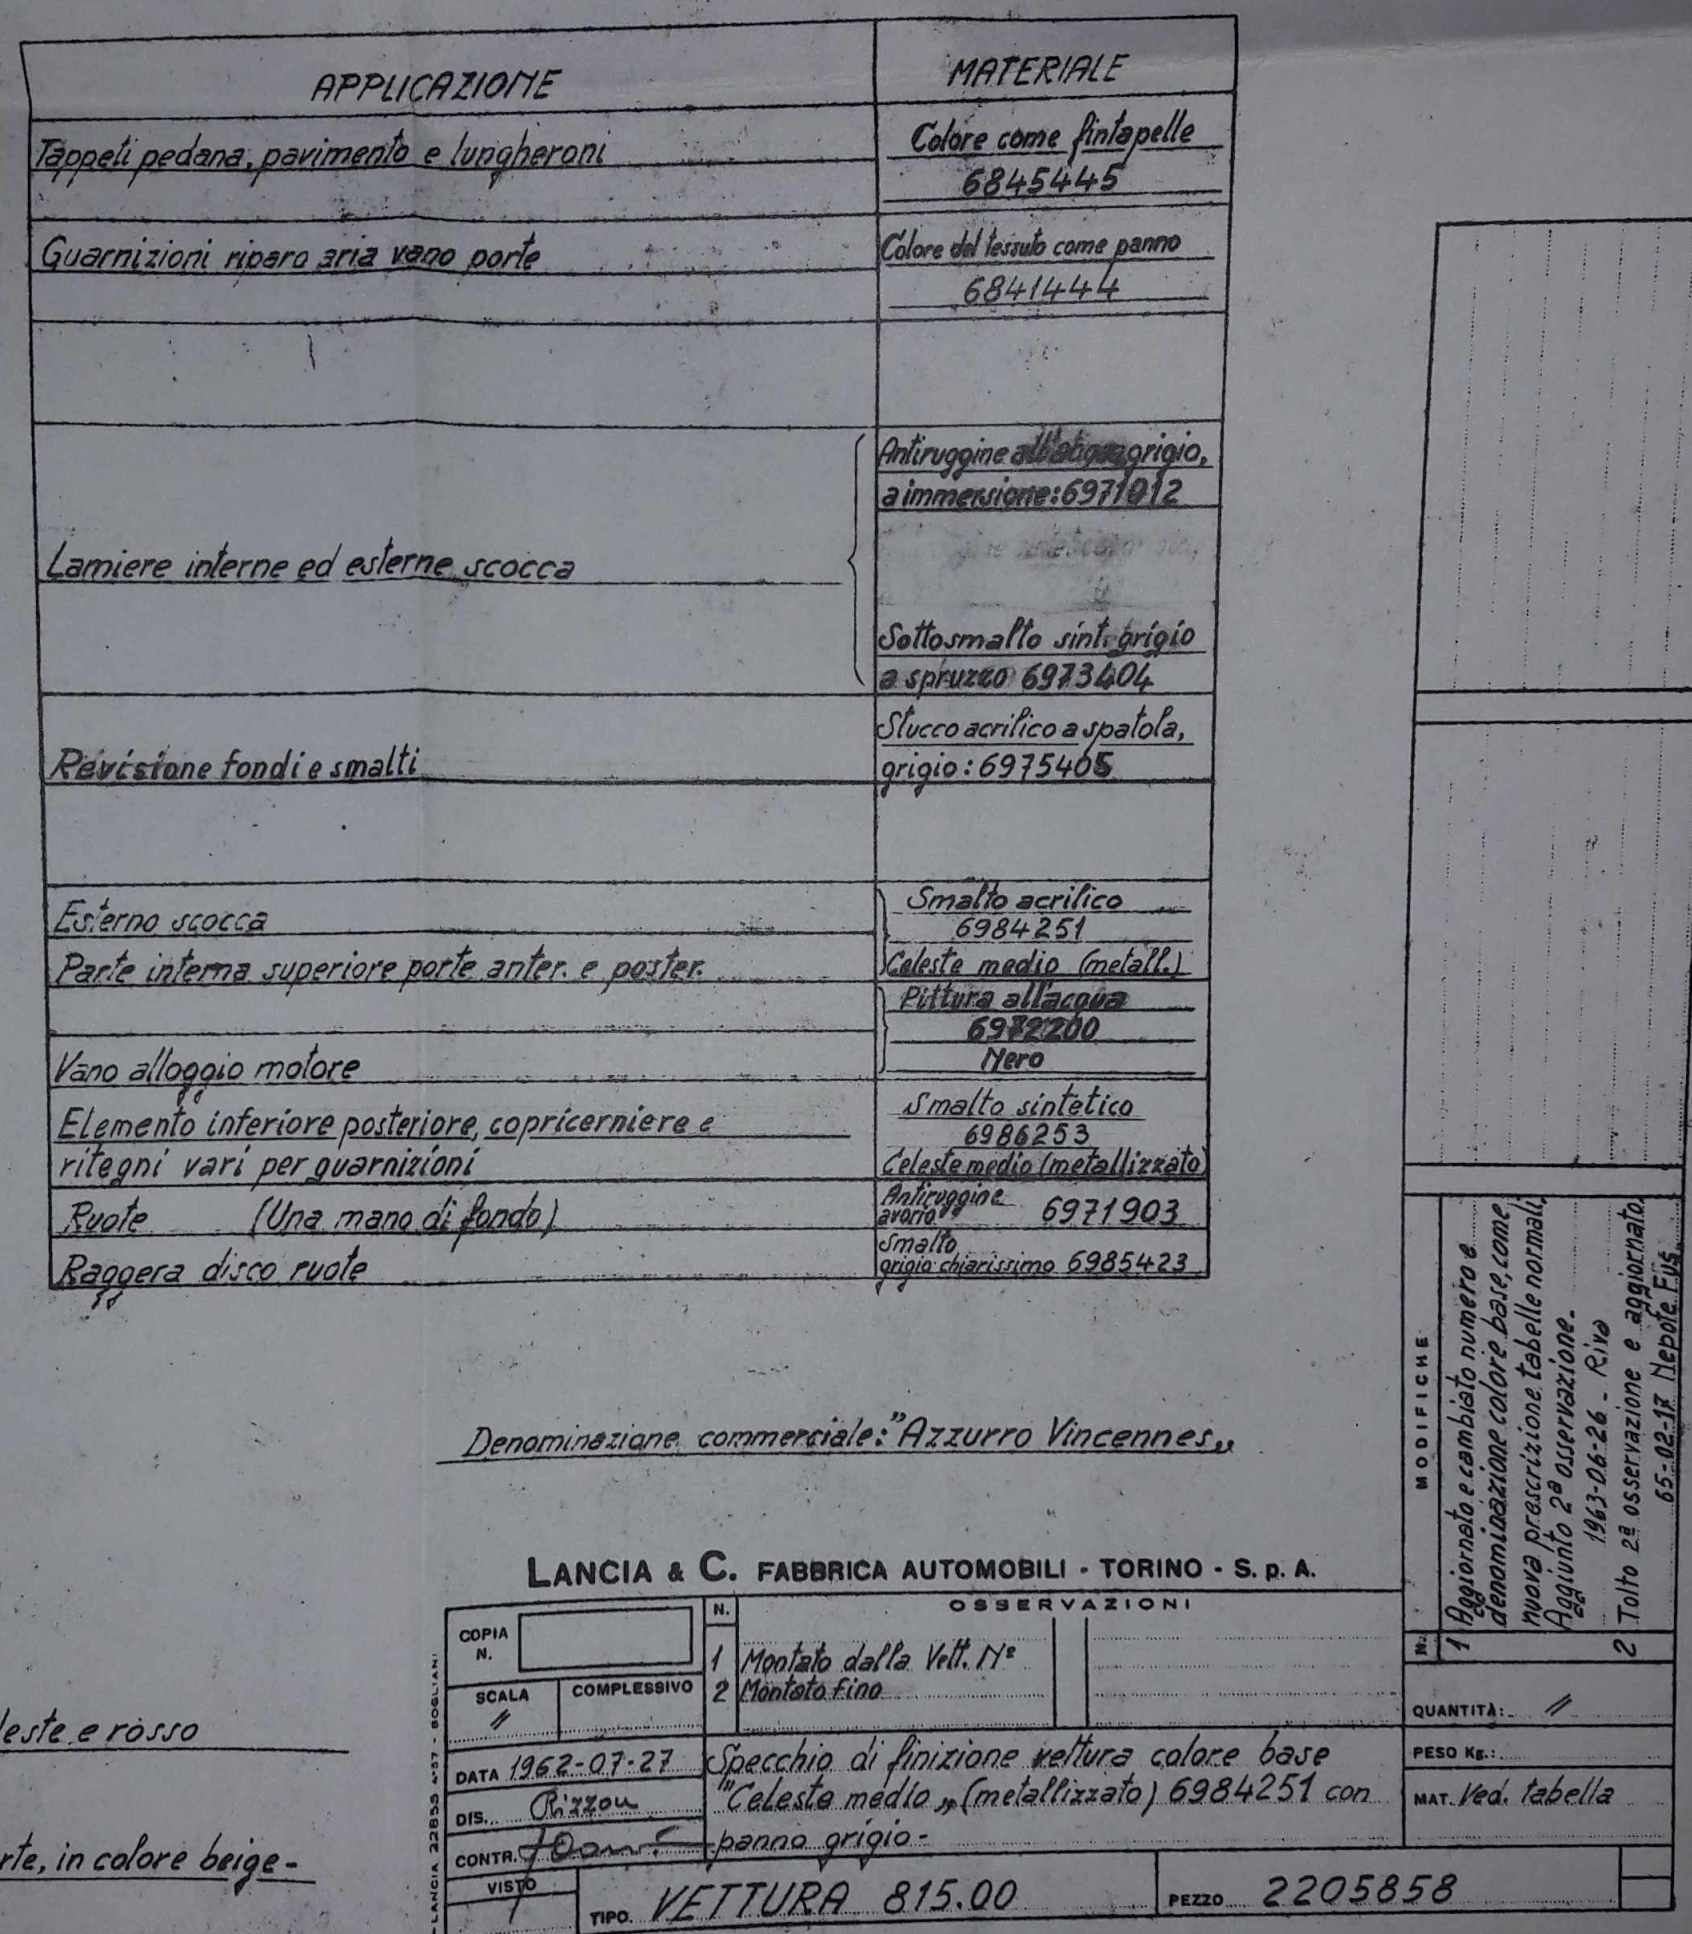 APPLICAZIONE
MATERIALE
Tappeti pedana, pavimento e lungheroni
Colore come fintapelle
6845445
Guarnizioni riparo aria vano porte
Colore del tessuto come panno
6841444
Lamiere interne ed esterne scocca
Antiruggine all'acqua grigio,
a immersione: 6971012
Sottosmalto sint. grigio
a spruzzo 6973404
Revisione fondi e smalti
Stucco acrilico a spatola,
grigio: 6975405
Esterno scocca
Parte interna superiore porte anter. e poster.
Smalto acrilico
6984251
Celeste medio (metall.)
Vano alloggio motore
Pittura all'acqua
6972200
Nero
Elemento inferiore posteriore, copricerniere e
ritegni vari per guarnizioni
Smalto sintetico
6986253
Celeste medio (metallizzato)
Ruote (Una mano di fondo)
Antiruggine
avorio 6971903
Raggera disco ruote
Smalto
grigio chiarissimo 6985423
Denominazione commerciale: "Azzurro Vincennes„
LANCIA & C. FABBRICA AUTOMOBILI - TORINO - S. p. A.
COPIA
N.
SCALA
//
COMPLESSIVO
N.
OSSERVAZIONI
1 Montato dalla Vett. N°
2 Montato fino
DATA 1962-07-27
DIS. Rizzou
CONTR.
VISTO
Specchio di finizione vettura colore base
"Celeste medio„ (metallizzato) 6984251 con
panno grigio-
TIPO. VETTURA 815.00
PEZZO 2205858
LANCIA 22855 4-57 - BOGLIANI
MODIFICHE
N.
1 Aggiornato e cambiato numero e
denominazione colore base, come
nuova prescrizione tabelle normali,
Aggiunto 2ª osservazione.
1963-06-26 - Riva
2 Tolto 2ª osservazione e aggiornato,
65-02-17 Nepote Fus
QUANTITÀ: //
PESO Kg.:
MAT. Ved. tabella
leste e rosso
rte, in colore beige-